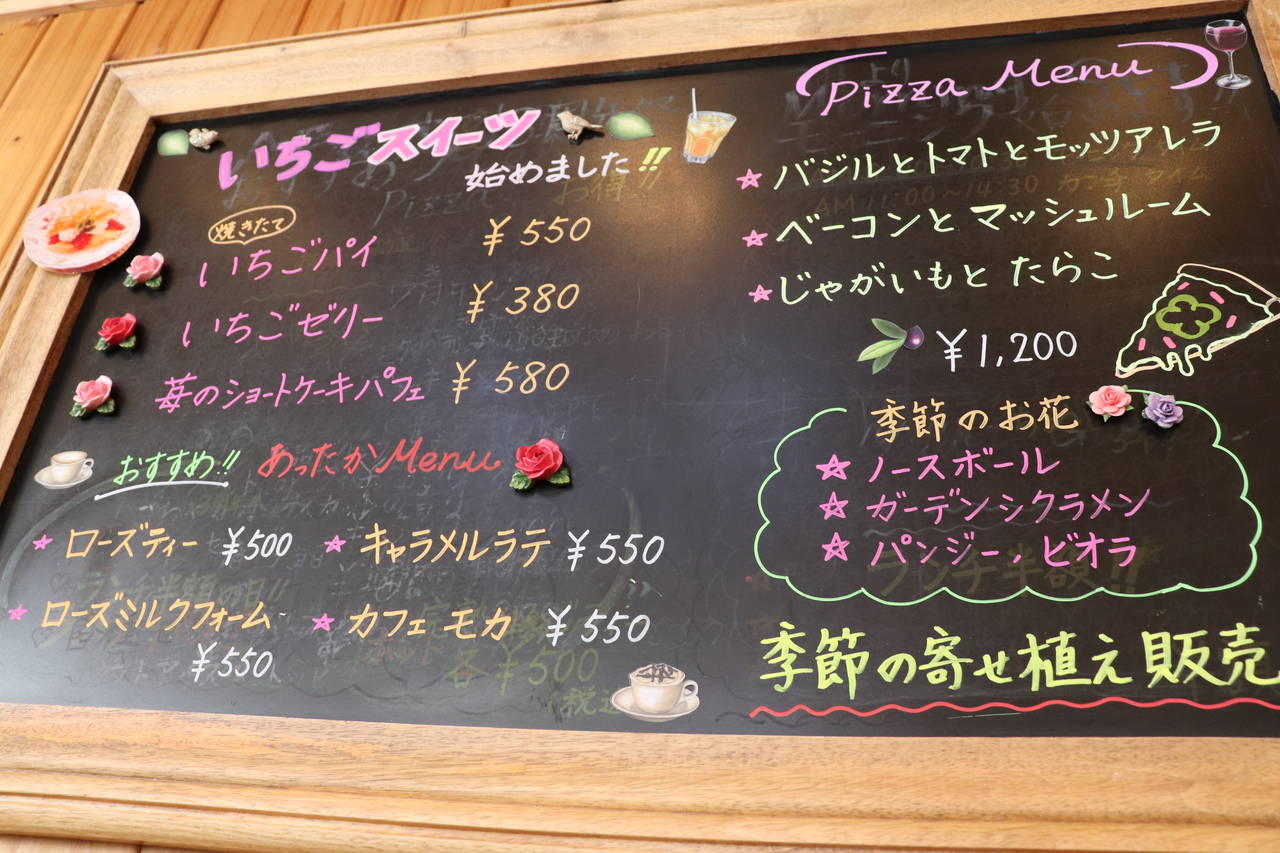 いちごスイーツ
始めました!!
焼きたて
いちごパイ ¥550
いちごゼリー ¥380
苺のショートケーキパフェ ¥580
おすすめ!! あったかMenu
ローズティー ¥500
キャラメルラテ ¥550
ローズミルクフォーム ¥550
カフェモカ ¥550
Pizza Menu
バジルとトマトとモッツアレラ
ベーコンとマッシュルーム
じゃがいもとたらこ
¥1,200
季節のお花
ノースボール
ガーデンシクラメン
パンジー,ビオラ
季節の寄せ植え販売